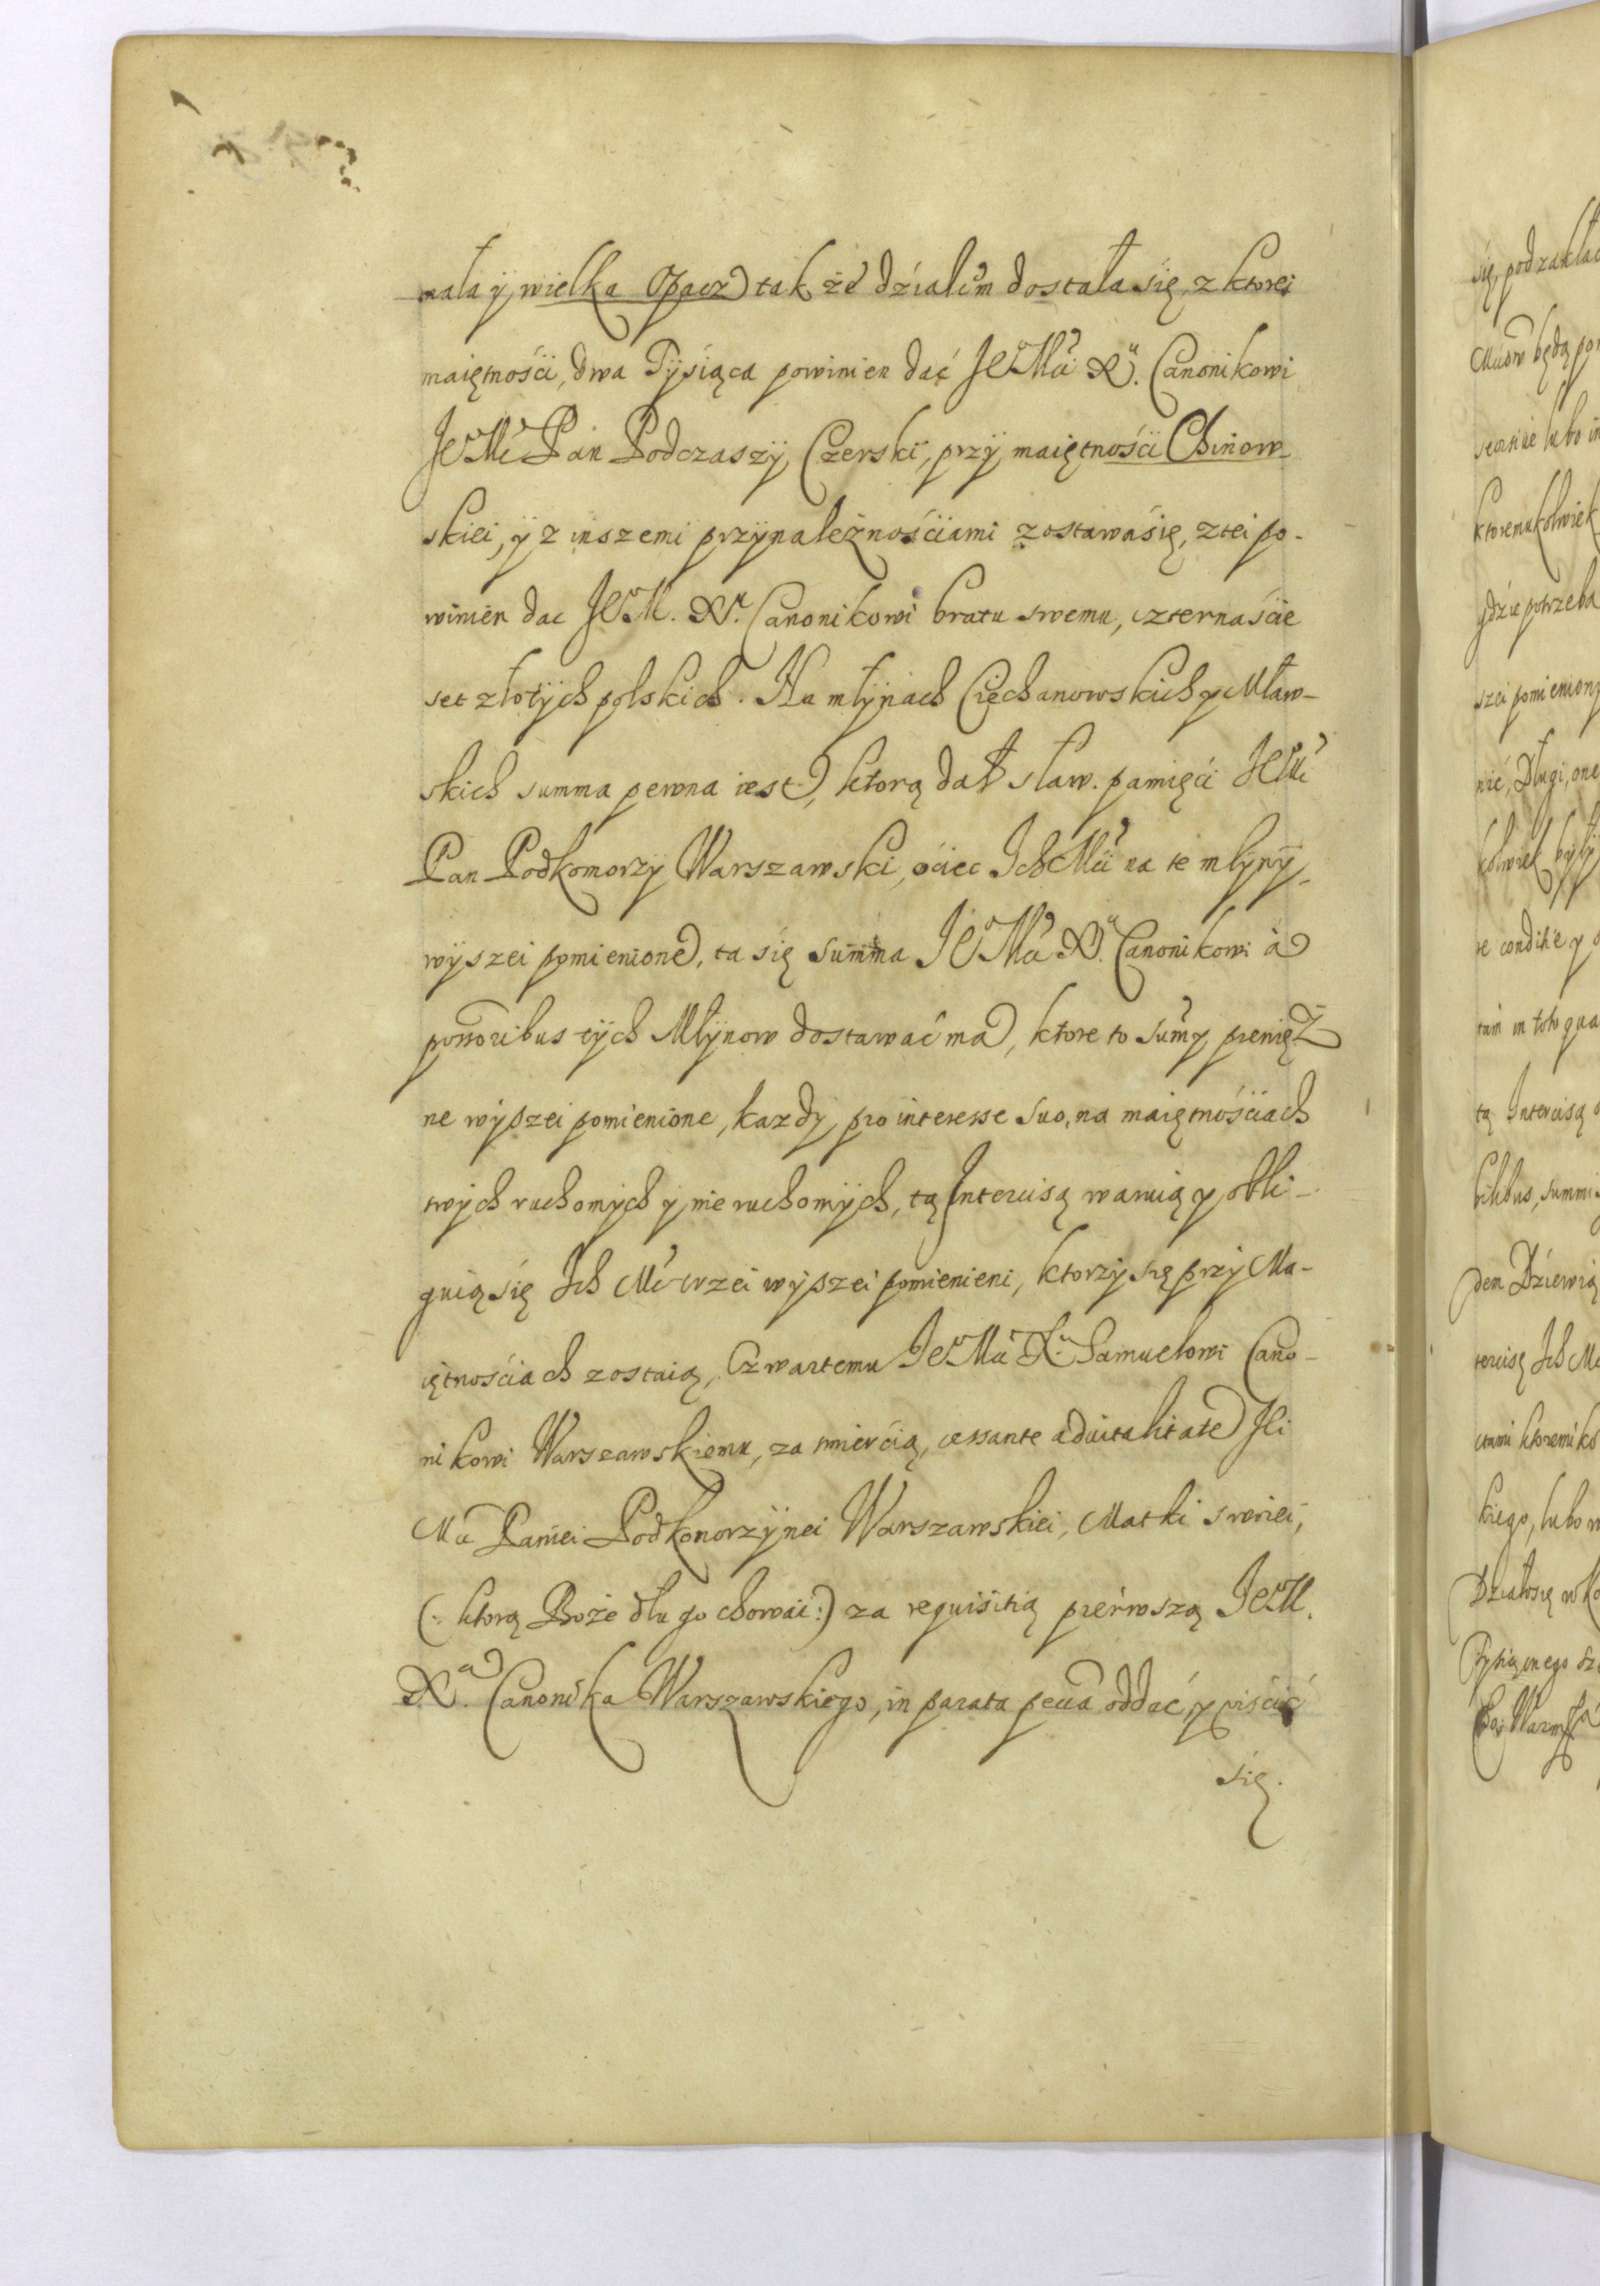 mała ÿ wielka Opacz tak że działem dostała się, z ktorei
maiętnośći, dwa Tÿsiąca powinien dać JeMći Xu. Canonikowi
JeMć Pan Podczaszÿ Czerski, przÿ maiętnośći Chinow-
skiei, ÿ z inszemi przÿnależnośćiami zostawa się, z tei po-
winien dac JeM. Xu. Canonikowi bratu swemu, czternaśćie
set złotÿch polskich. Na młÿnach Ciechanowskich y Mław-
skich summa pewna iest, ktorą dał sław. pamięći JeMć
Pan Podkomorzÿ Warszawski, oćiec IchMći na te młÿnÿ,
wÿszei pomienione, ta się summa JeMći Xu. Canonikowi à
possoribus tÿch Młÿnow dostawać ma, ktore to summy pienięż
ne wÿszei pomienione, kazdÿ pro interesse suo, na maiętnośćiach
swÿch ruchomÿch ÿ nieruchomÿch, tą Intercisą waruią y obli-
guią się Ich Mć trzei wÿszei pomienieni, ktorzÿ się przÿ Ma-
iętnośćiach zostaią, Czwartemu JeMći Xu. Samuelowi Cano-
nikowi Warszawskiemu, za smierćią, cessante aduitalitate Jei
Mći Paniei Podkomorzÿnei Warszawskiei, Matki swoiei,
(: ktorą Boże długo chowai :) za requisitią pierwszą JeM.
Xa. Canonika Warszawskiego, in parata pecua oddać, y uiśćić
się.

się, pod zakład
Mćiow będą po
ktoremukolwiek
gdzie potrzeba
szei pomienion
nić, Długi, one
kolwiek bÿłÿ
re conditie y
tam in toto qua
tą Intercisą
bilibus, summi
den Dziewią
tercisę Ich Mć
ctami ktoremiko
kiego, lubo
Działo się w
Tysiącnego